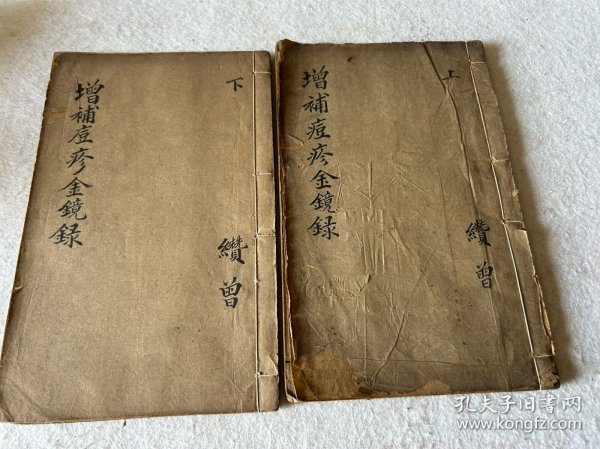 下
增補痘疹金鏡録
纘曾
上
增補痘疹金鏡録
纘曾
孔夫子旧书网
www.kongfz.com